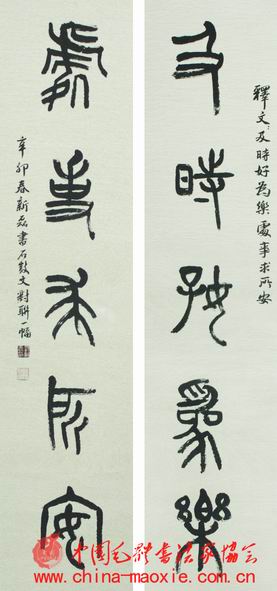 釋文：及時好為樂處事求所安
及時好為樂
處事求所安
辛卯春新磊書石鼓文對聯一幅
中國毛體書法家協會
www.china-maoxie.com